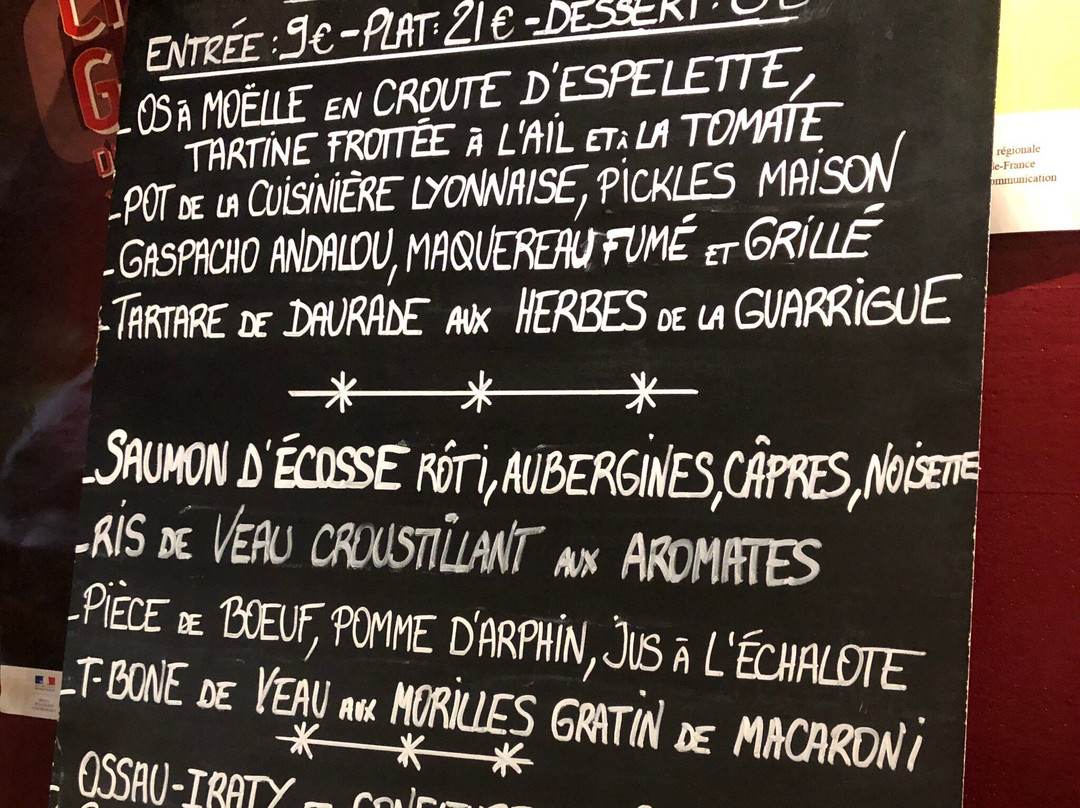 ENTRÉE : 9€ - PLAT : 21€ - DESSERT :
- OS À MOËLLE EN CROUTE D'ESPELETTE,
TARTINE FROTTÉE À L'AIL ET À LA TOMATE
- POT DE LA CUISINIÈRE LYONNAISE, PICKLES MAISON
- GASPACHO ANDALOU, MAQUEREAU FUMÉ ET GRILLÉ
- TARTARE DE DAURADE AUX HERBES DE LA GUARRIGUE
- SAUMON D'ÉCOSSE RÔTI, AUBERGINES, CÂPRES, NOISETTE
- RIS DE VEAU CROUSTILLANT AUX AROMATES
- PIÈCE DE BOEUF, POMME D'ARPHIN, JUS À L'ÉCHALOTE
- T-BONE DE VEAU AUX MORILLES GRATIN DE MACARONI
OSSAU-IRATY
régionale
le-France
ommunication